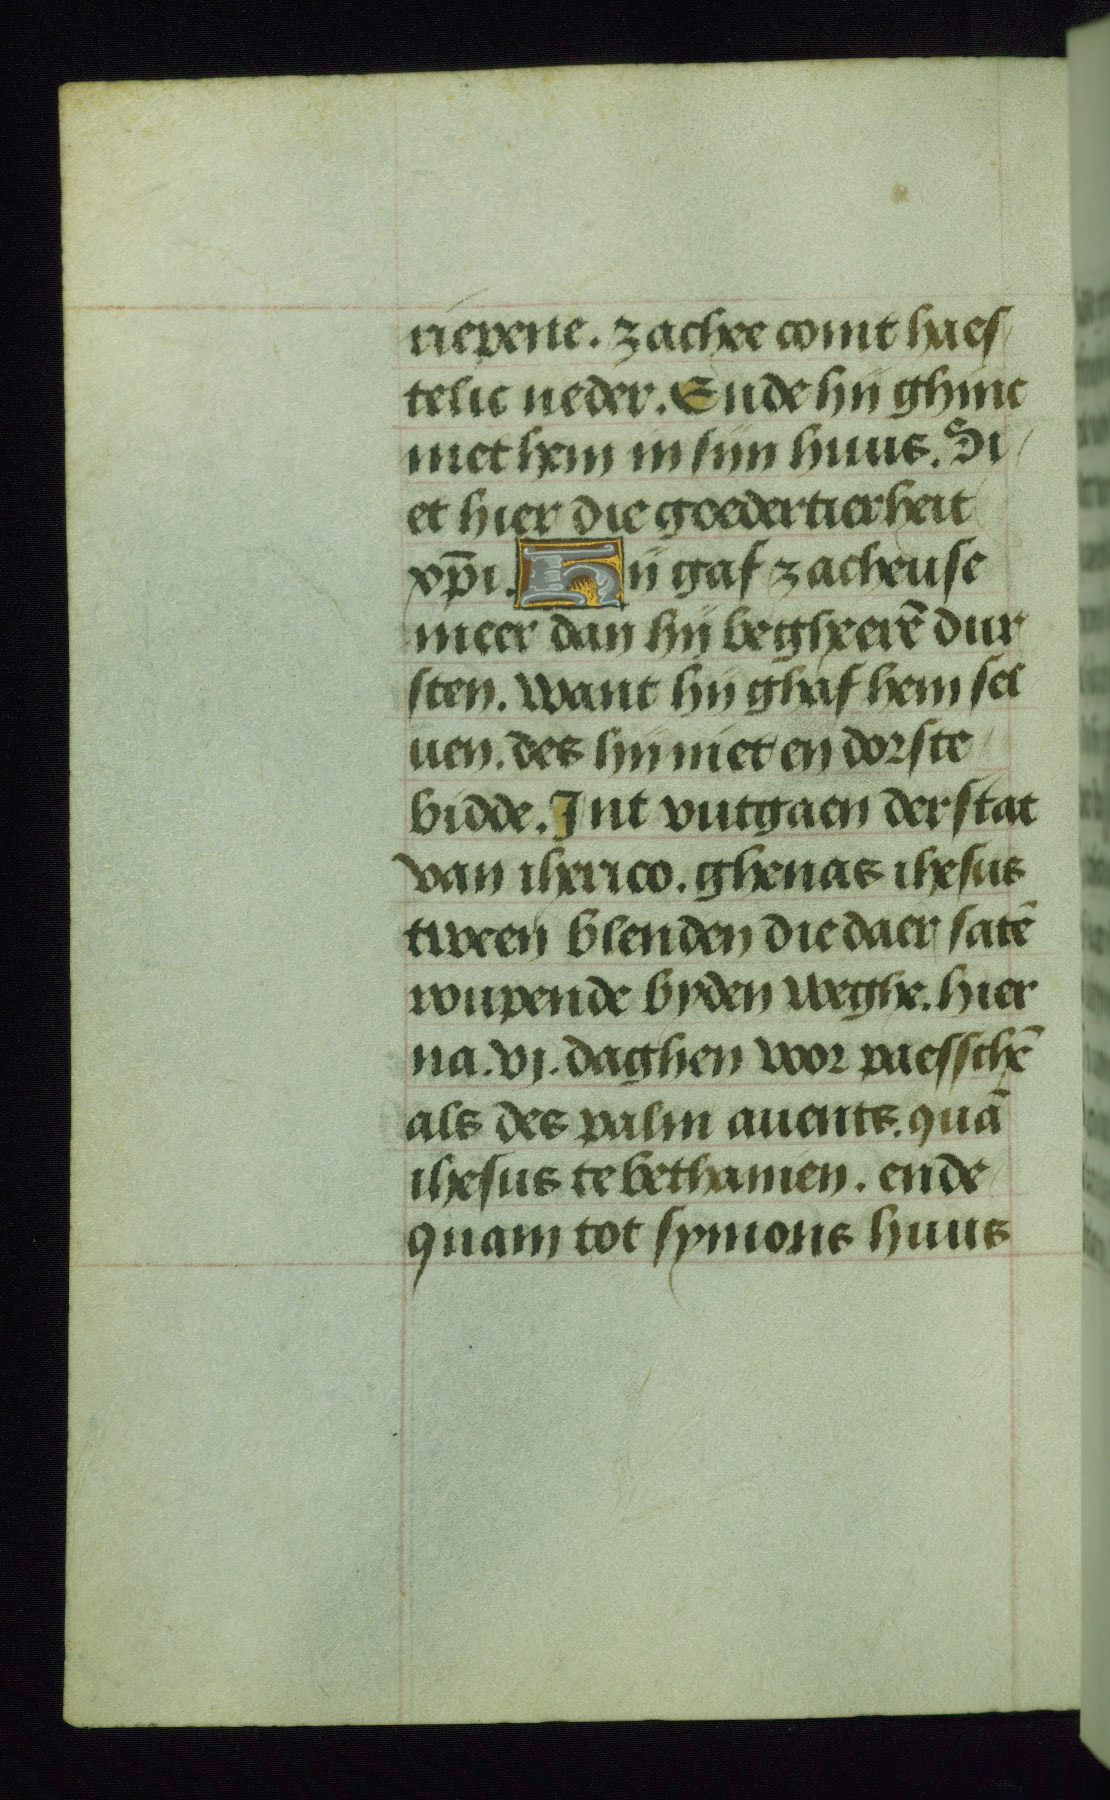 riepene. zachee comt haes
telic neder. Ende hij ghinc
met hem in sijn huus. Si
et hier die goedertierheit
xp̄i. Hij gaf zacheuse
meer dan hij begheerē dur
sten. want hij ghaf hem sel
uen. des hij niet en dorste
bidde. Int vutgaen der stat
van iherico. ghenas ihesus
tween blenden die daer satē
roupende byden weghe. hier
na. vj. daghen voor paesschē
als des palm auents. quā
ihesus te bethanien. ende
quam tot symons huus